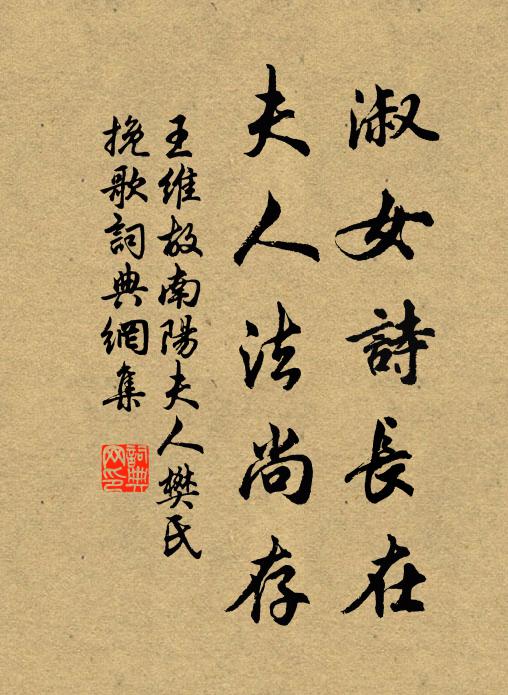 淑女詩長在
夫人法尚存
王維故南陽夫人樊氏
挽歌詞典網集
詞典网印